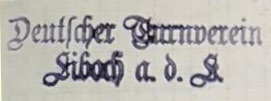 Deutscher Turnverein
Liboch a. d. E.